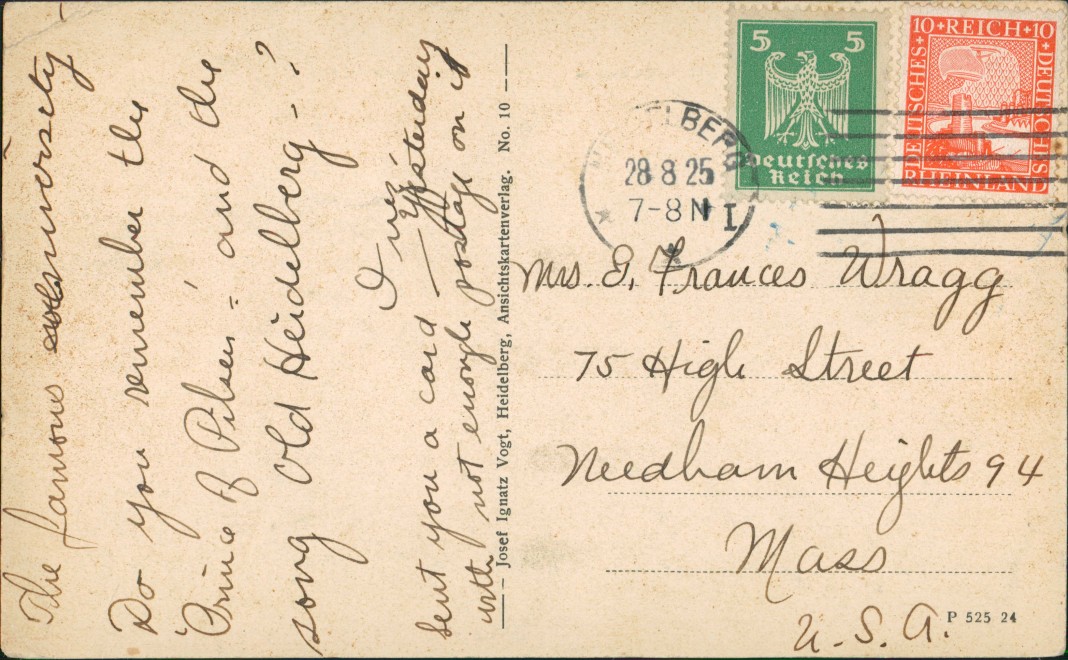 The famous university
Do you remember the
"Prince of Pilsen" - and the
song Old Heidelberg - ?
I
sent you a card — yesterday
with not enough postage on it
— Josef Ignatz Vogt, Heidelberg, Ansichtskartenverlag. No. 10 —
5 5
Deutsches
Reich
10+REICH+10
DEUTSCHES
DEUTSCHES
RHEINLAND
ELBERG
28 8 25
7-8 N
I
Mrs. G. Frances Wragg
75 High Street
Needham Heights 94
Mass
U. S. A.
P 525 24